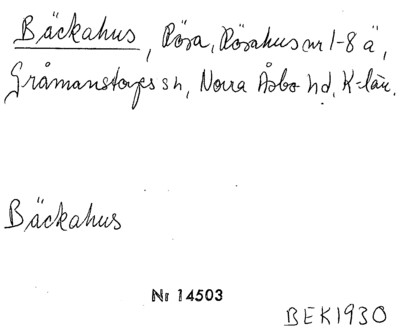 Bäckahus, Rösa, Rösahus nr 1-8 ä,
Gråmanstorps sn, Norra Åsbo hd, K-län.
Bäckahus
Nr 14503
BEK1930